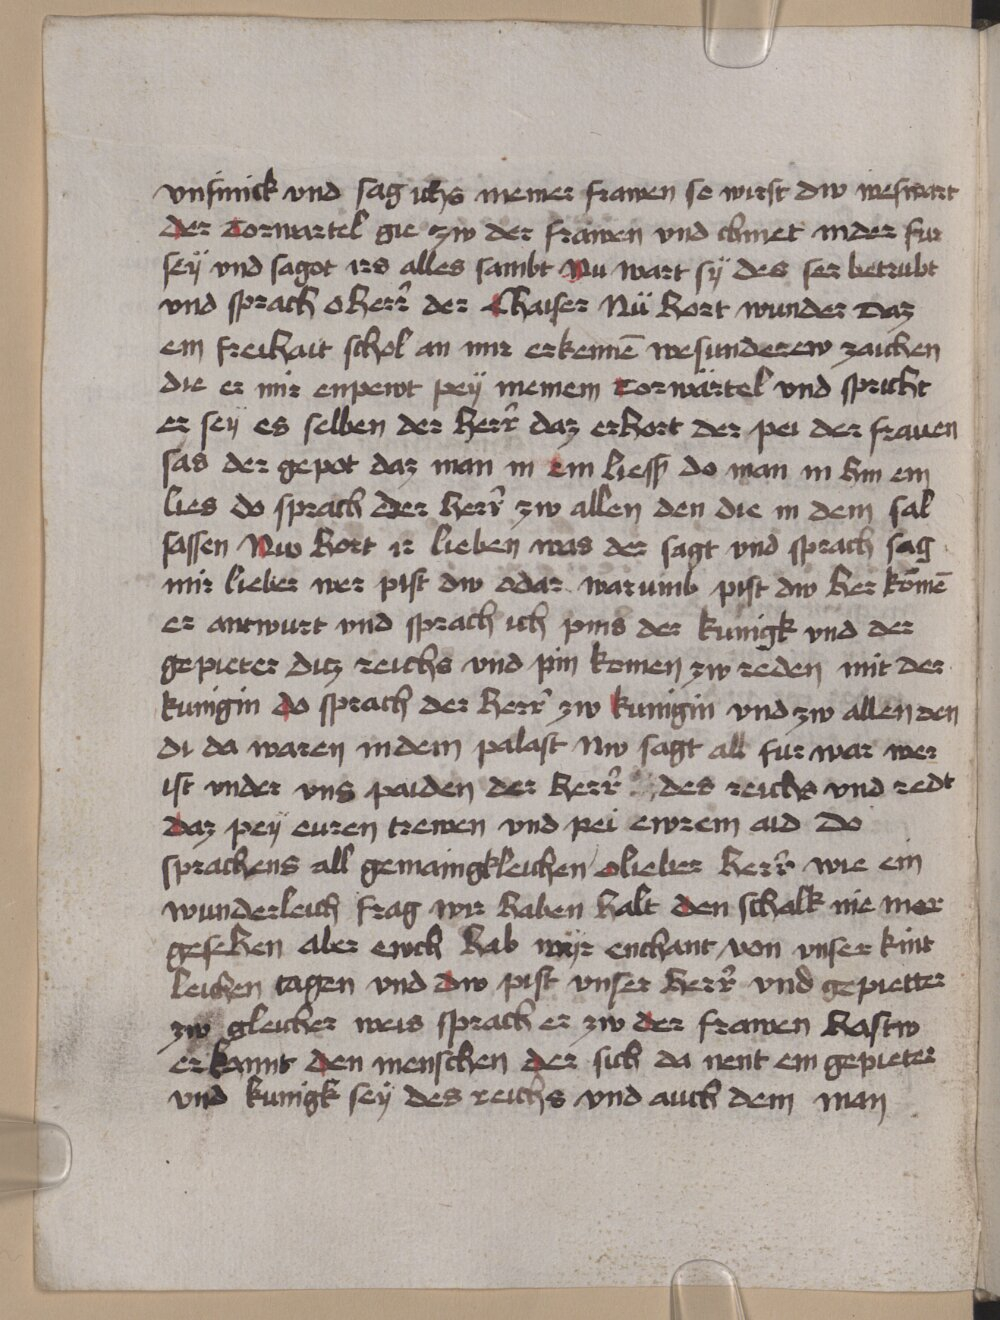 vnsinick vnd sag ichs meiner frawen so wirst dw weswart
der torwartel gie zw der frawen vnd chniet nider fur
seÿ vnd sagot irs alles sambt Nu wart sÿ des ser betrubt
vnd sprach o herr̄ der Chaiser Nü hort wunder daz
ein freihait schol an mir erkennē wesunderew zaichen
die er mir enpewt peÿ meinem torwärtel vnd spricht
er seÿ es selben der herr̄ daz erhort der pei der frauen
sas der gepot daz man in ein liess do man in hin ein
lies do sprach der herr̄ zw allen den die in dem sal
sassen Nw hort ir lieben was der sagt vnd sprach sag
mir lieber wer pist dw odar warumb pist dw her komē
er antwurt vnd sprach ich pins der kunigk vnd der
gepieter ditz reichs vnd pin komen zw reden mit der
kunigin do sprach der herr̄ zw kunigin vnd zw allen den
di da waren in dem palast Nw sagt all fur war wer
ist vnder vns paiden der herr̄ des reichs vnd redt
daz peÿ euren trewen vnd pei ewrem aid Do
sprachens all gemaingkleichen o lieber herr̄ wie ein
wunderleich frag wir haben halt den schalk nie mer
gesehen aber ewch hab wir enchant von vnser kint
leichen tagen vnd dw pist vnser herr̄ vnd gepietter
zw gleicher weis sprach er zw der frawen hastw
erkannt den menschen der sich da nent ein gepieter
vnd kunigk seÿ des reichs vnd auch dem man